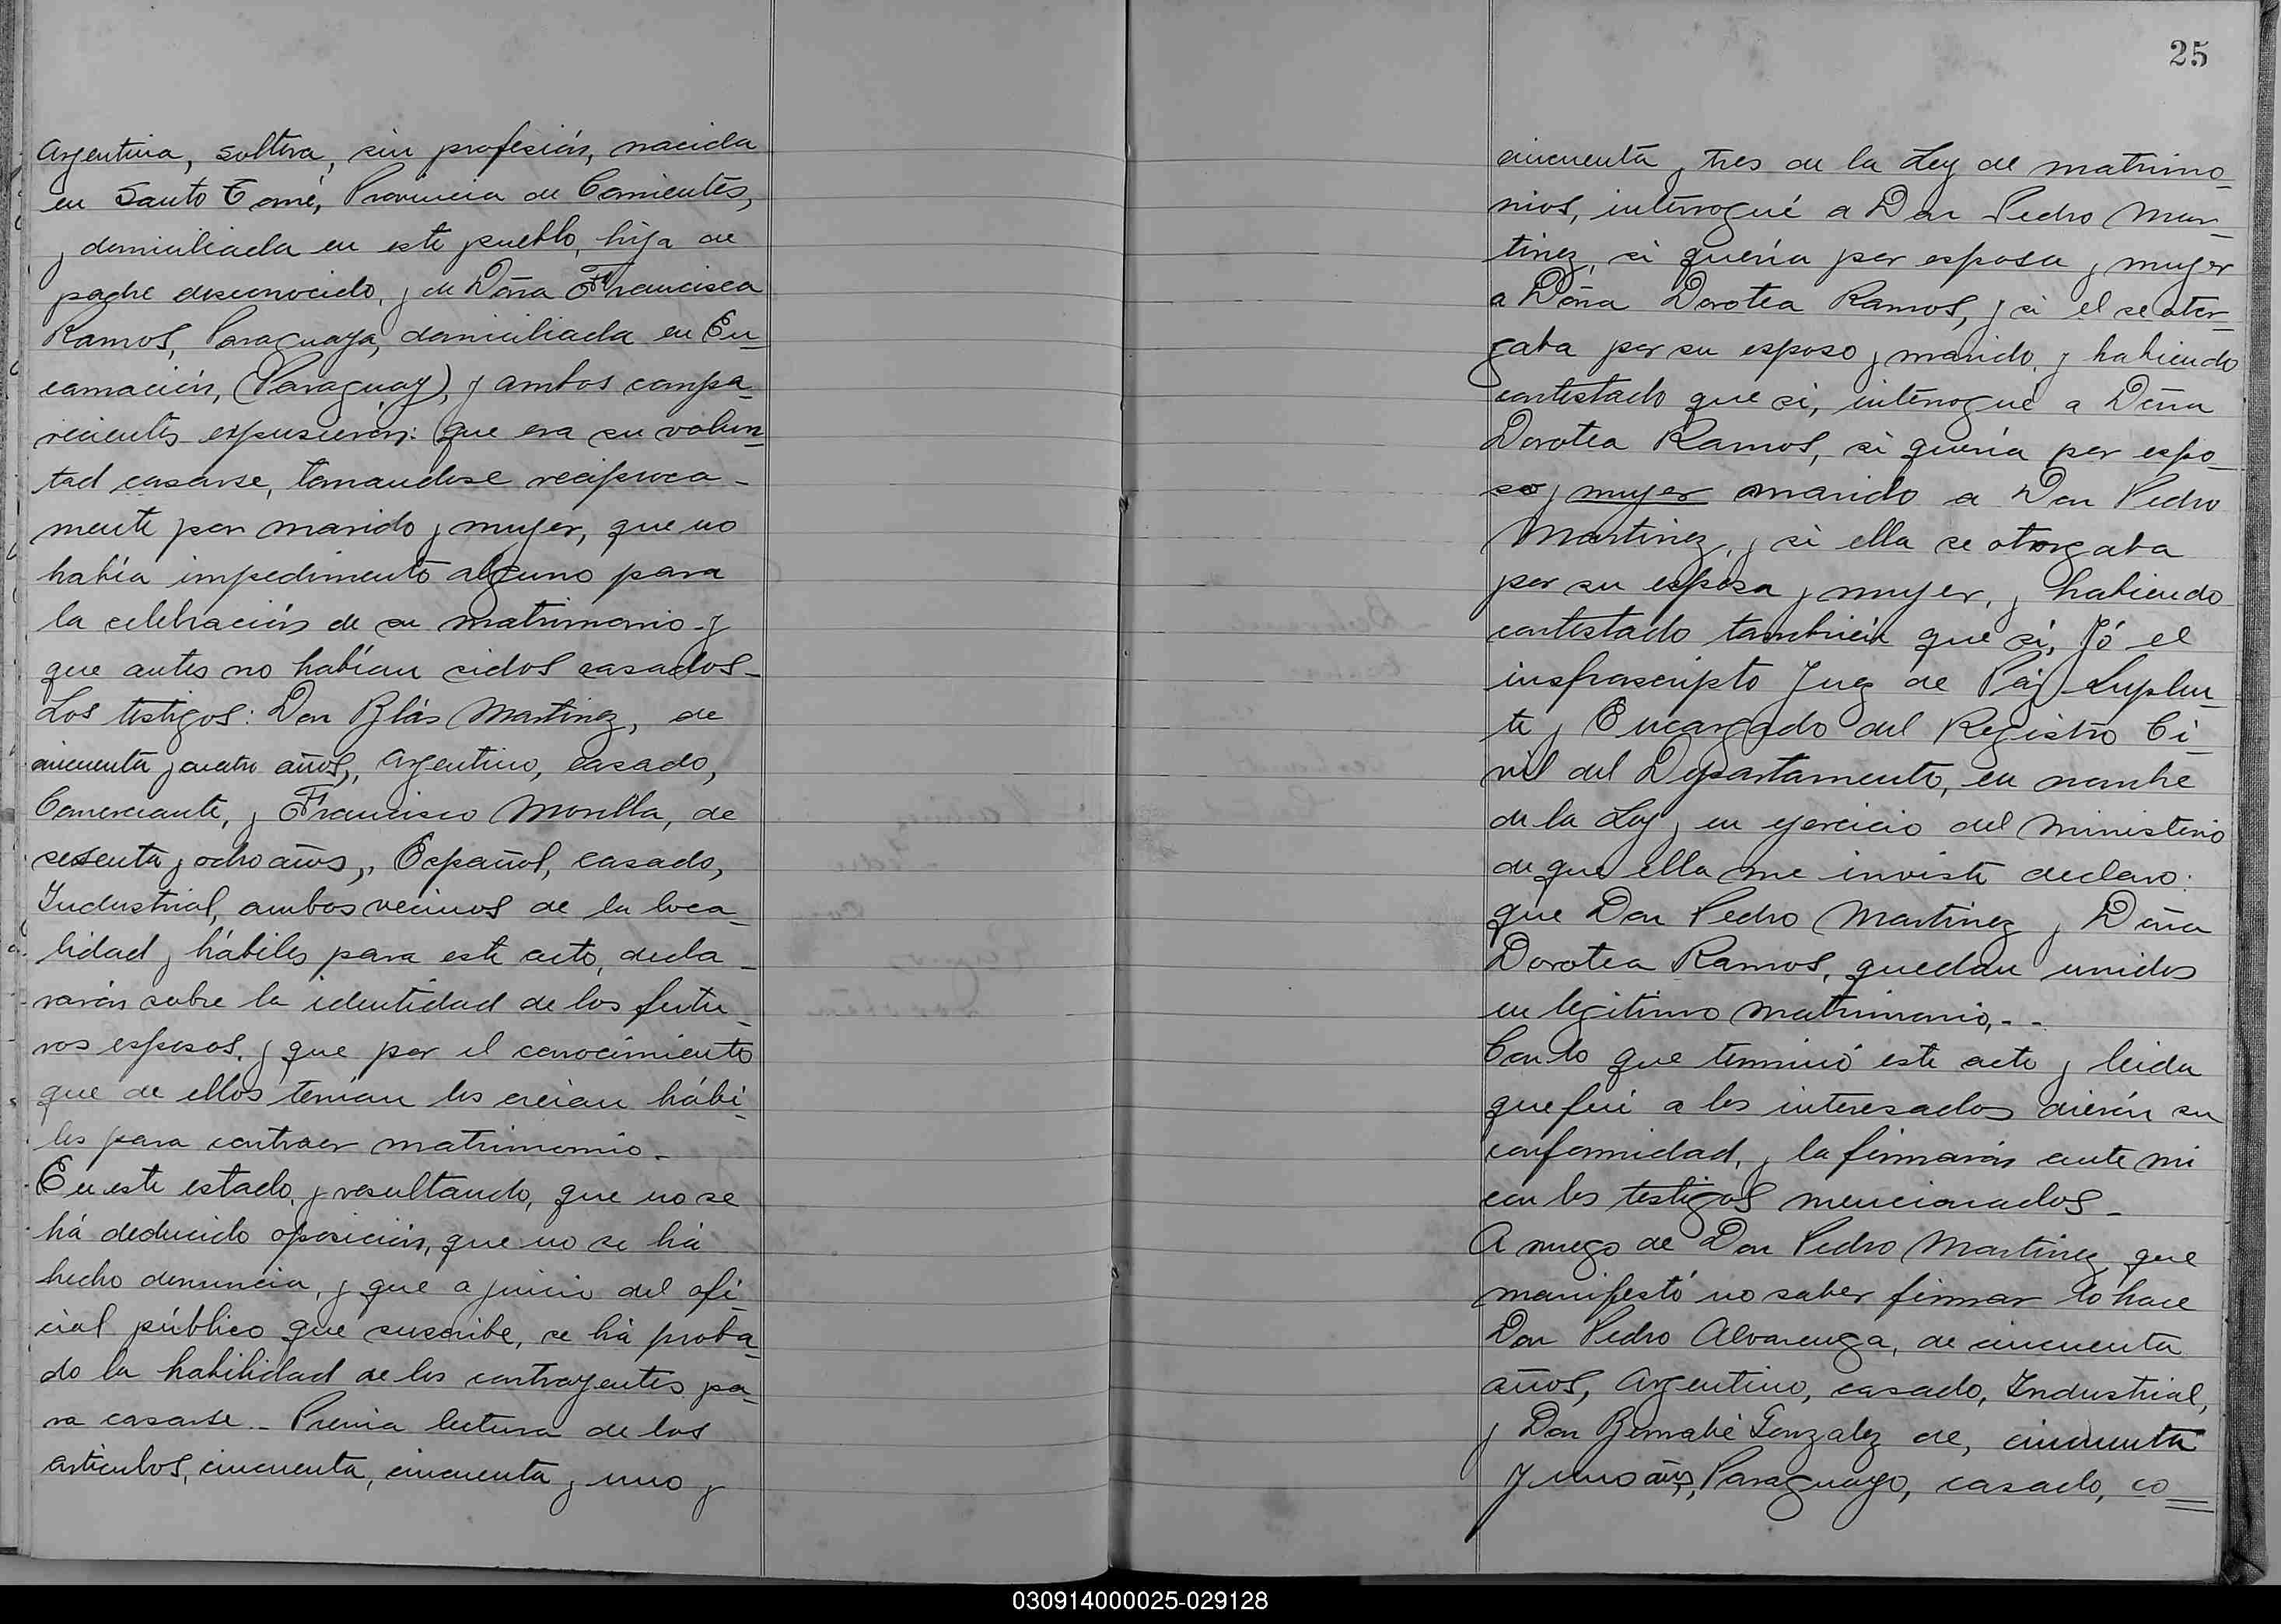 Argentina, soltera, sin profesión, nacida
en Santo Tomé, Provincia de Corrientes,
y domiciliada en este pueblo, hija de
padre desconocido, y de Doña Francisca
Ramos, Paraguaya, domiciliada en En-
carnación, (Paraguay), y ambos compa-
recientes expusierón: que era su volun-
tad casarse, tomandose reciproca-
mente por marido y mujer, que no
había impedimento alguno para
la celebración de su matrimonio y
que antes no habían sidos casados-
Los testigos: Don Blás Martinez, de
cincuenta y cuatro años, Argentino, casado,
Comerciante, y Francisco Morilla, de
sesenta y ocho años, Español, casado,
Industrial, ambos vecinos de la loca-
lidad y hábiles para este acto, decla-
rarón sobre la identidad de los futu-
ros esposos, y que por el conocimiento
que de ellos tenían los creían hábi-
les para contraer matrimonio.-
En este estado, y resultando, que no se
há deducido oposición, que no se há
hecho denuncia, y que a juicio del ofi-
cial público que suscribe, se há proba-
do la habilidad de los contrayentes pa-
ra casarse.- Previa lectura de los
artículos, cincuenta, cincuenta y uno y
25
cincuenta y tres de la Ley de matrimo-
nios, interrogué a Don Pedro Mar-
tinez, si quería por esposa y mujer
a Doña Dorotea Ramos, y si el se otor-
gaba por su esposo y marido, y habiendo
contestado que si, interrogué a Doña
Dorotea Ramos, si quería por espo-
so y mujer marido a Don Pedro
Martinez, y si ella se otorgaba
por su esposa y mujer, y habiendo
contestado también que si, Yó el
insfrascripto Juez de Páz Suplen-
te y Encargado del Registro Ci-
vil del Departamento, en nombre
de la Ley y en ejercicio del ministerio
de que ella me inviste declaro:
que Don Pedro Martinez y Doña
Dorotea Ramos, quedan unidos
en legitimo matrimonio.--
Con lo que terminó este acto y leida
que fué a los interesados dierón su
conformidad, y la firmarón ante mi
con los testigos mencionados.-
A ruego de Don Pedro Martinez que
manifestó no saber firmar lo hace
Don Pedro Alvarenga, de cincuenta
años, Argentino, casado, Industrial,
y Don Bernabé Gonzalez de, cincuenta
y uno años, Paraguayo, casado, co=
030914000025-029128